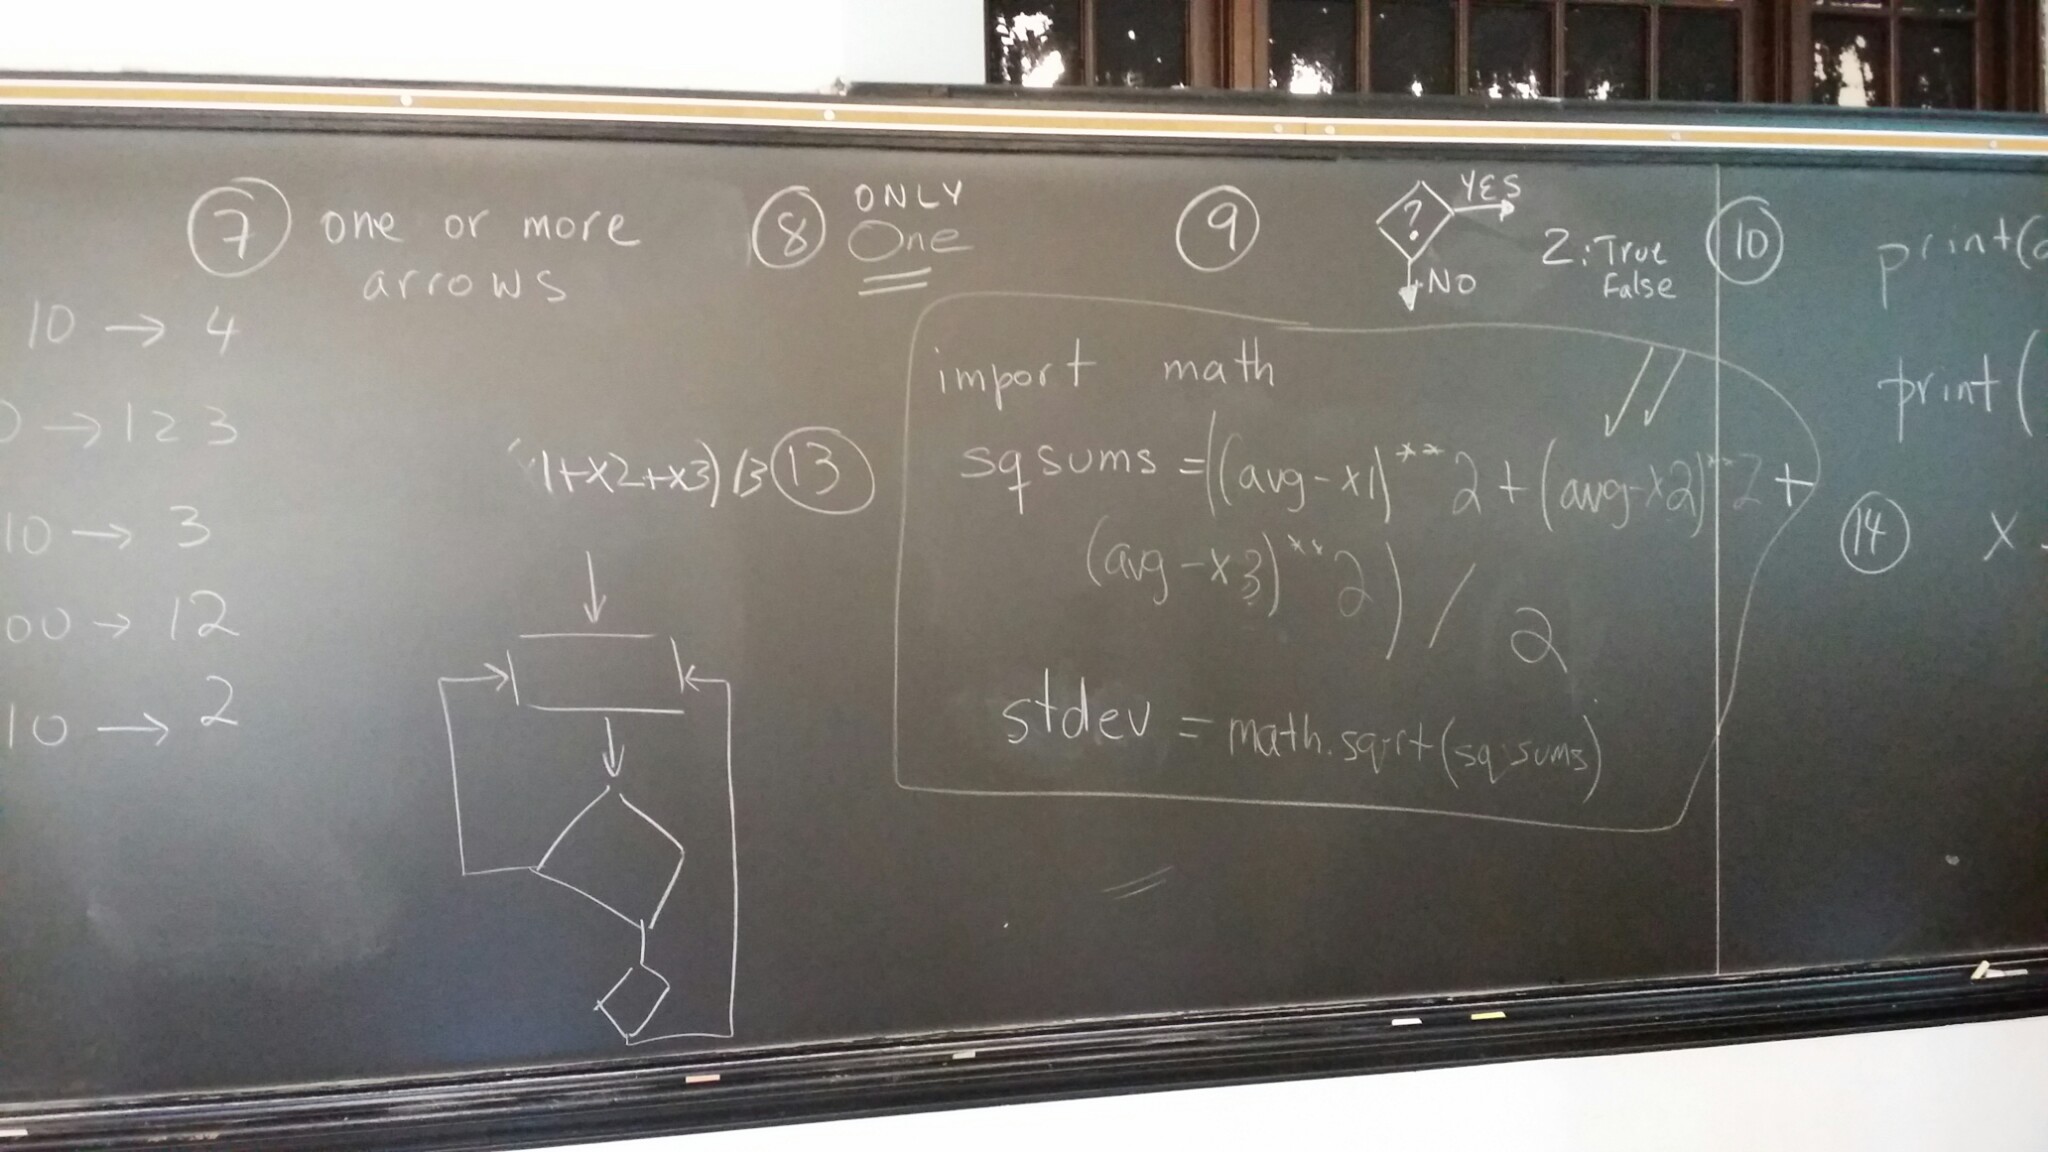 7 one or more
arrows
10 → 4
→ 123
10 → 3
00 → 12
10 → 2
1+x2+x3)/3
8 ONLY
One
9 ? YES
NO
2: True
False
13 import math
sqsums = ((avg-x1)**2 + (avg-x2)**2 +
(avg-x3)**2) / 2
stdev = math.sqrt(sqsums)
10 print(
print(
14 x